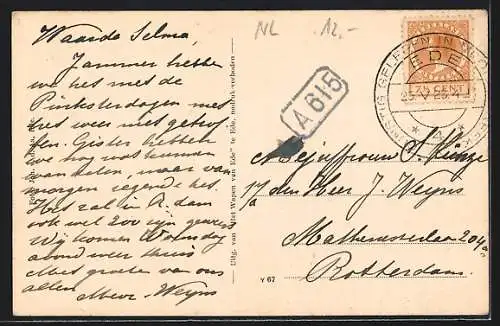 NL 12.-
Waarde Selma,
Jammer hebben
we het met de
Pinksterdagen met
het weer niet getrof-
fen. Gister hebben
we nog wat kunnen
wandelen, maar van
morgen regende het.
Het zal in A.dam
ook wel zoo zijn geweest
Wij komen Woensdag
avond weer thuis
Met groeten van ons
allen
Mevr. Weyns
Uitg. van "Het Wapen van Ede" te Ede, nadruk verboden
A 615
GELEGEN IN
EDE
7½ CENT
Mejuffrouw S.
p/a den Heer J. Weyns
Mathenesserlaan 204a
Rotterdam.
Y 67